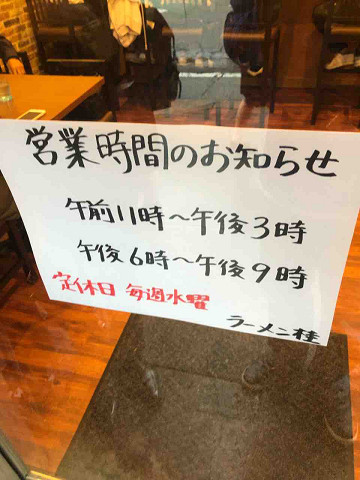 営業時間のお知らせ
午前11時～午後3時
午後6時～午後9時
定休日 毎週水曜
ラーメン桂